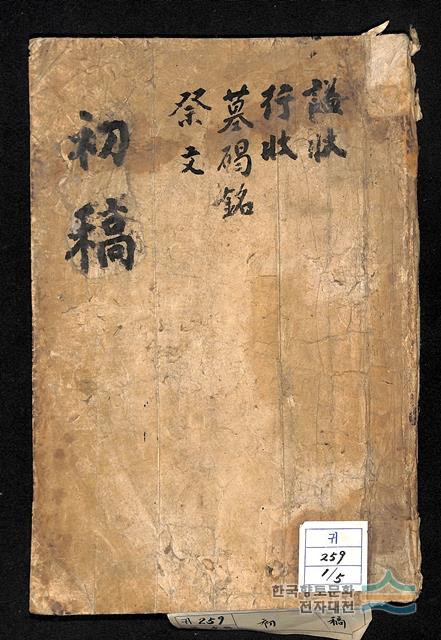 諡狀
行狀
墓碣銘
祭文
初稿
귀
259
1/5
한국향토문화
전자대전
귀 259 初 稿